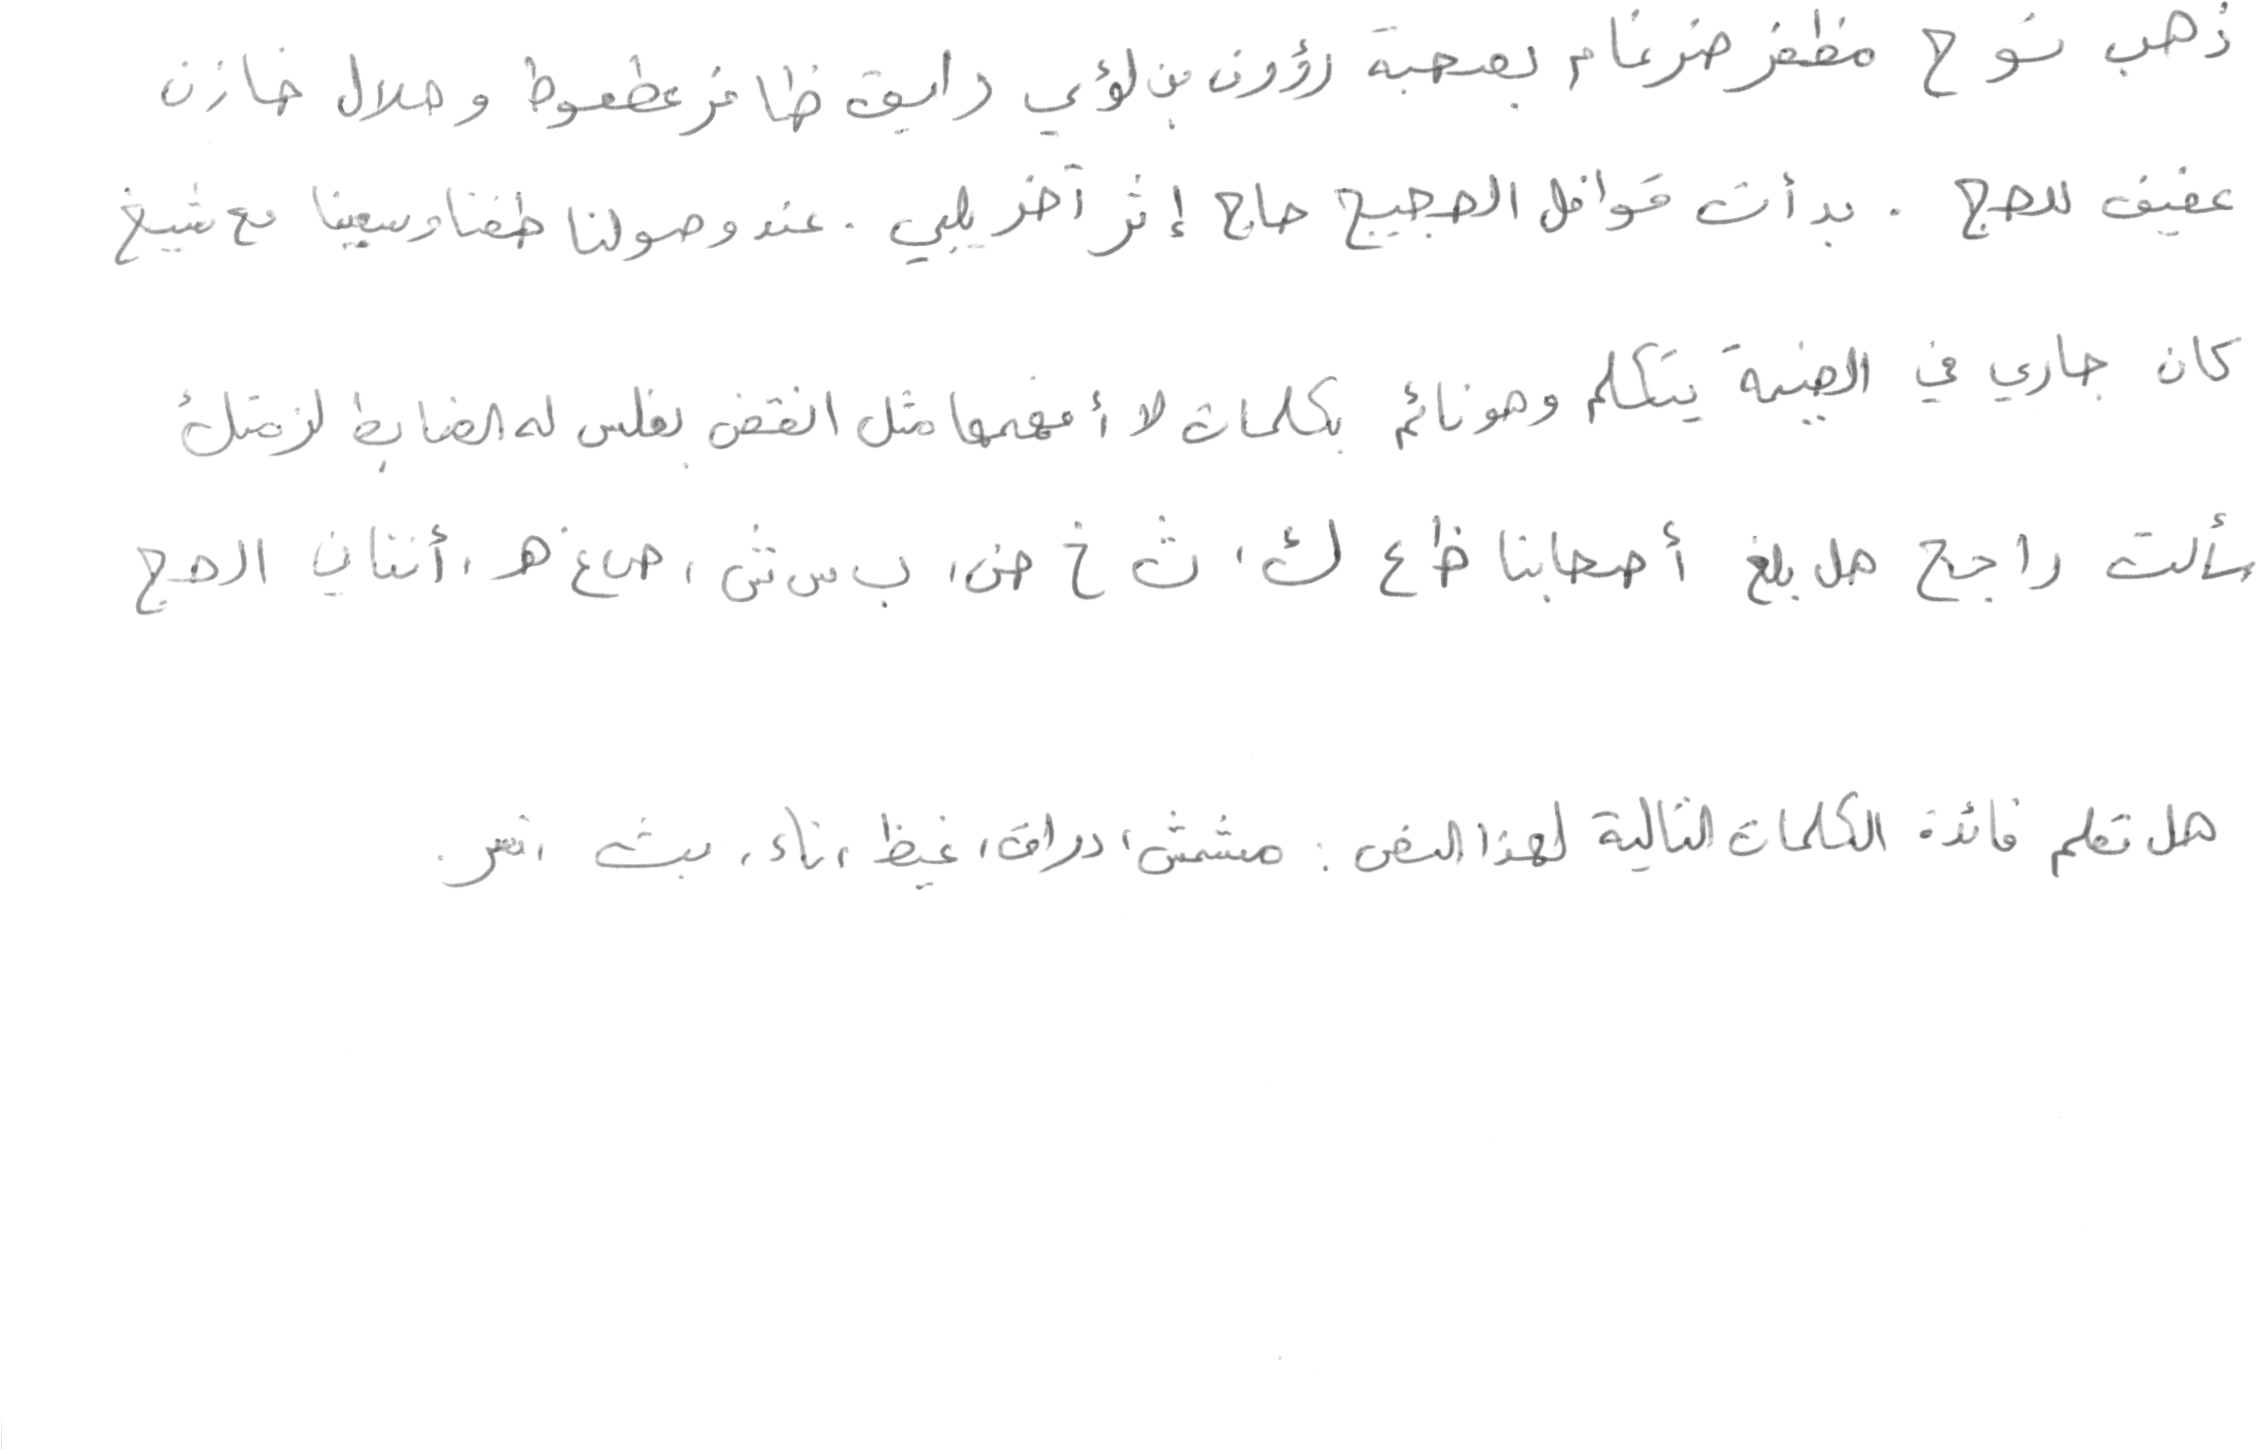 ذهب نوح مظفر ضرغام بصحبة رؤوف بن لؤي رايق ظافر عطعوط وهلال خازن
عفيف للحج . بدأت قوافل الحجيج حاج إثر آخر يلبي . عند وصولنا طفنا وسعينا مع شيخ
كان جاري في الخيمة يتكلم وهو نائم بكلمات لا أفهمها مثل انقض بغلس له الضابط لزقتك
سألت راجح هل بلغ أصحابنا ظ ع ك ، ث خ ض ، ب س ش ، ص غ هـ ، أننا في الحج
هل تعلم فائدة الكلمات التالية لهذا النص : مشمش ، دراق ، غيظ ، ناء ، بث ، نمر .